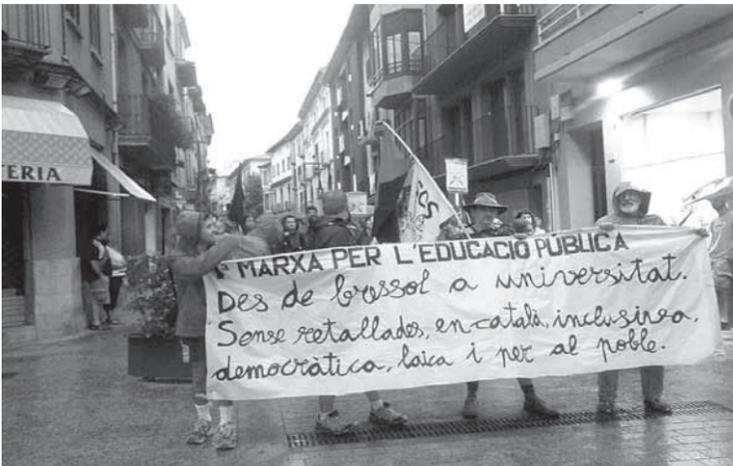 TERIA
1ª MARXA PER L'EDUCACIÓ PÚBLICA
Des de bressol a universitat.
Sense retallades, en català, inclusiva,
democràtica, laica i per al poble.